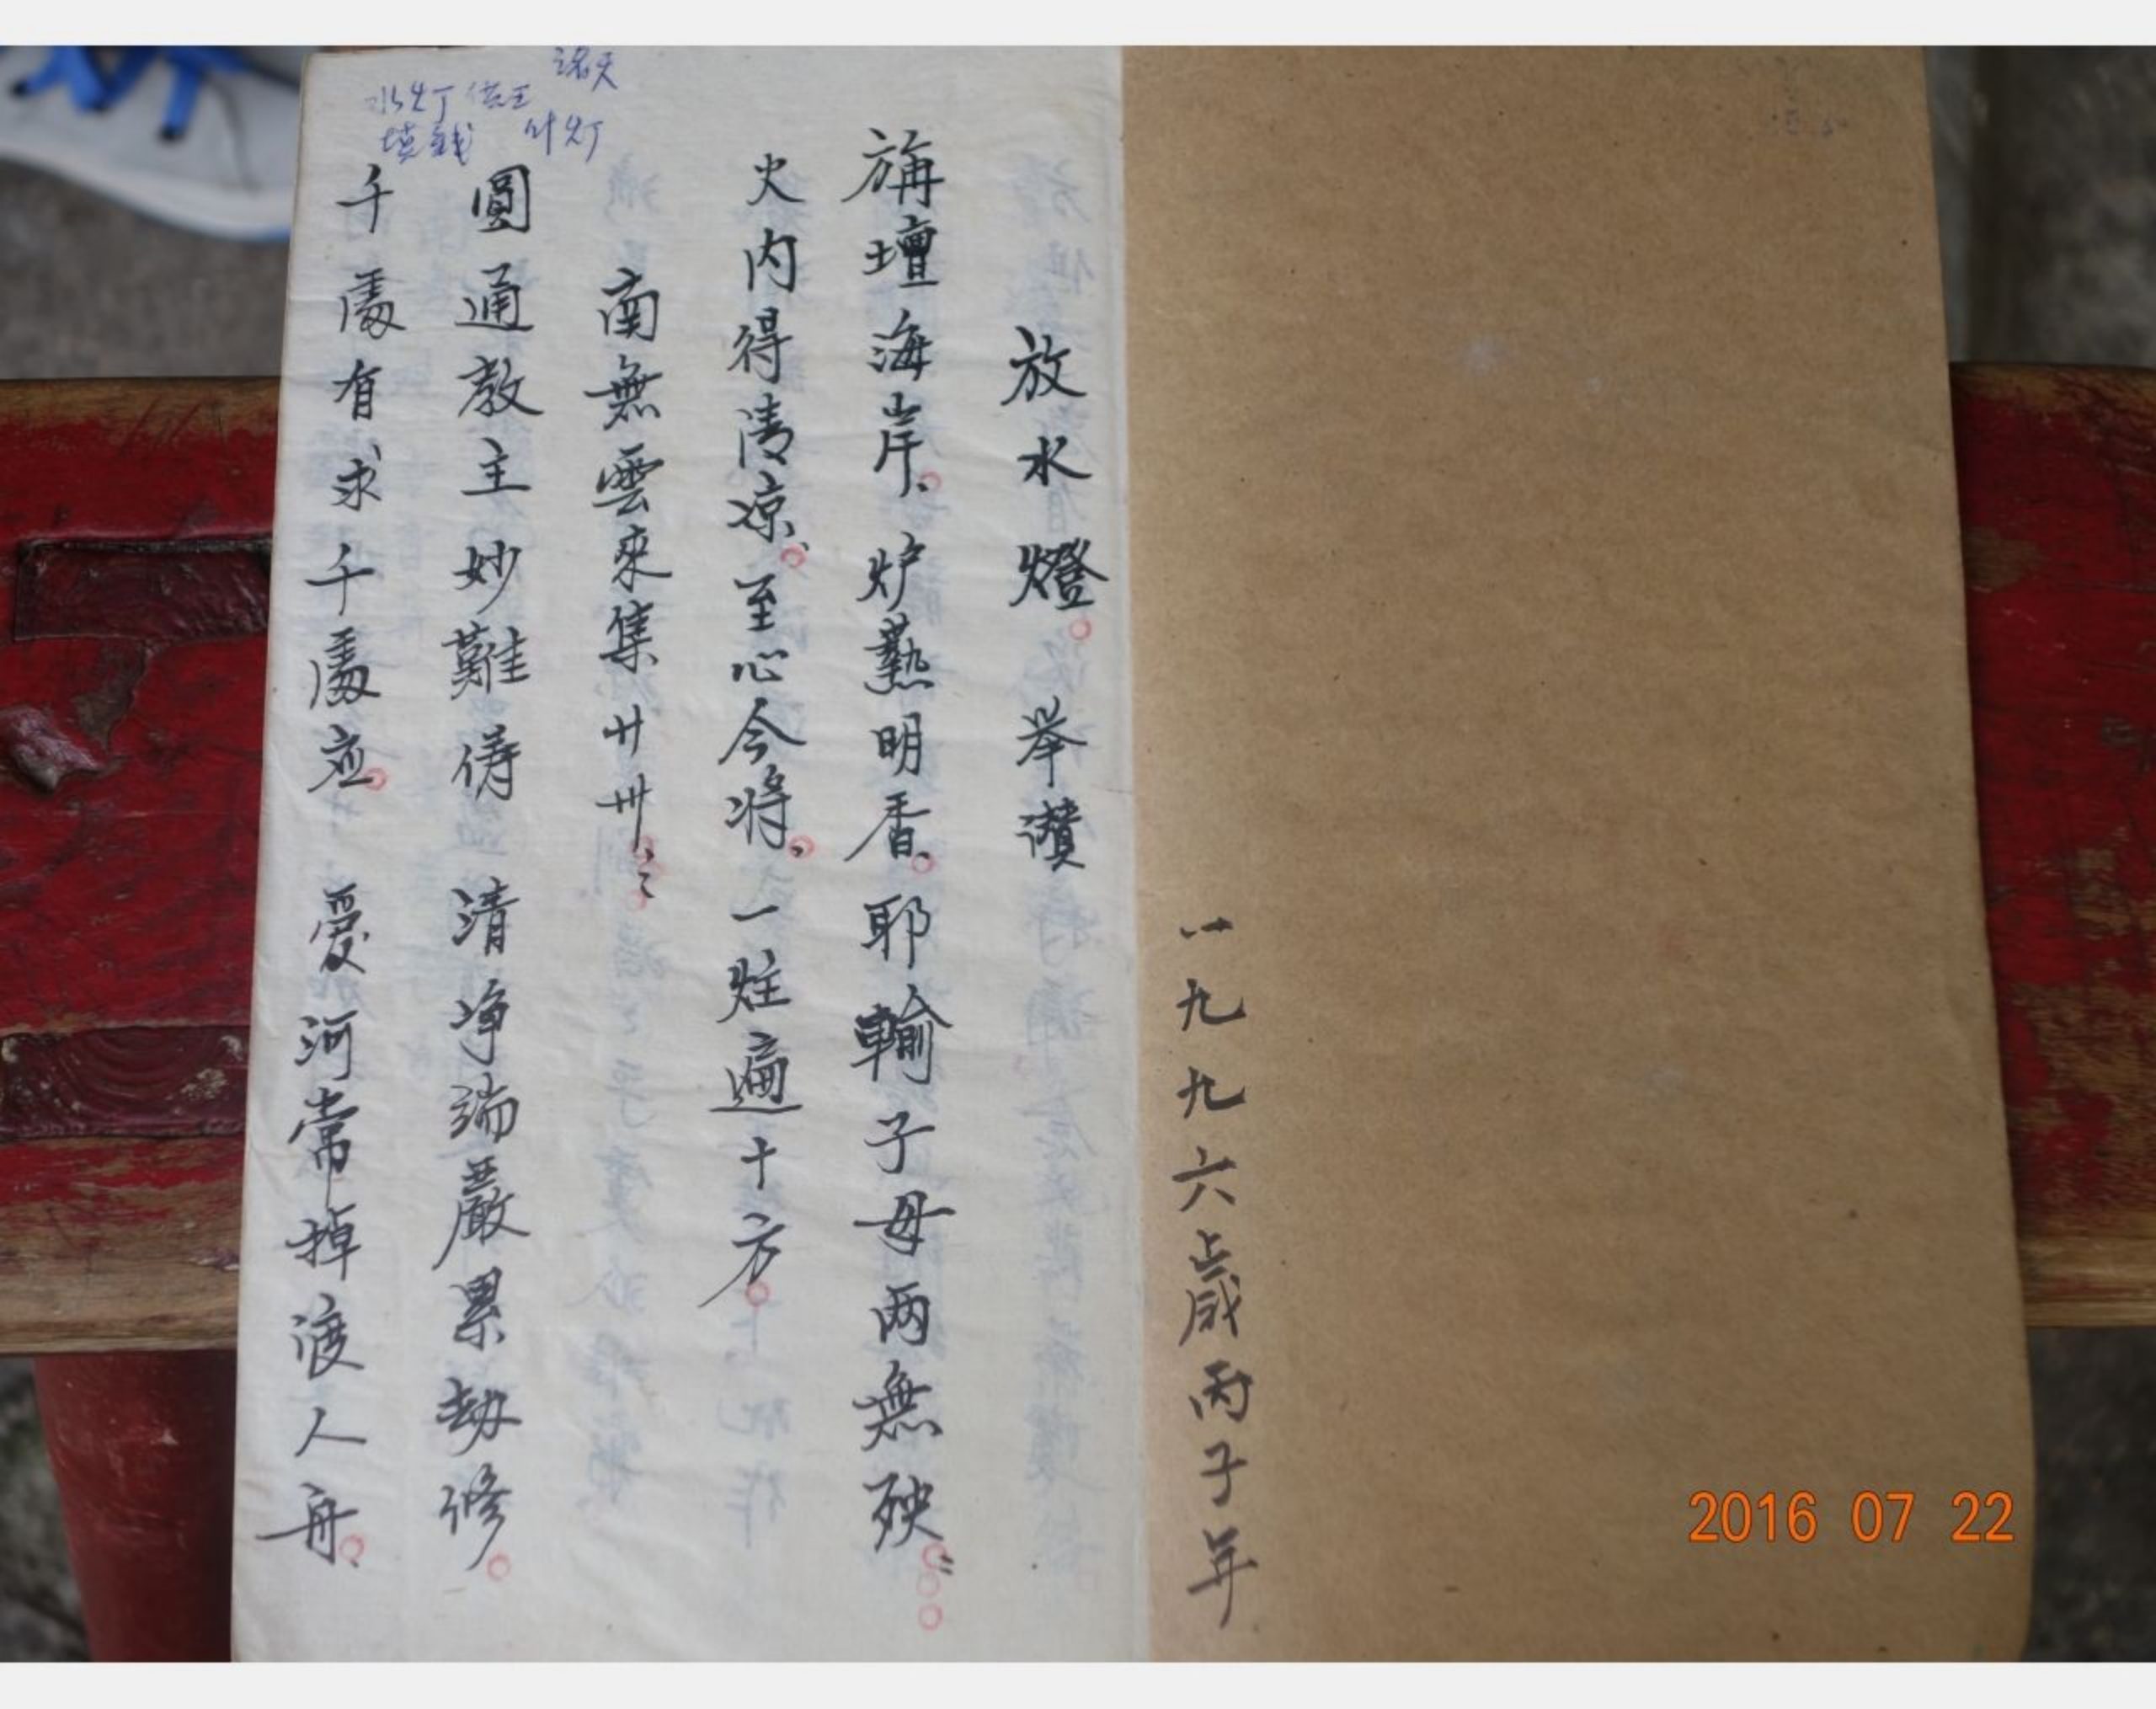 一九九六歲丙子年
放水燈。举讚
旃壇海岸。炉爇明香。耶輸子母两無殃。
火内得清凉。至心今将。一炷遍十方。
南無雲來集廿卅
圓通教主妙難俦 清净端嚴累劫修。
千處有求千處应。愛河常掉渡人舟。
諸天
水灯 供王
填錢 叶灯
2016 07 22